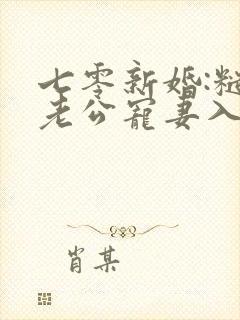 七零新婚:糙
老公宠妻入
肖某